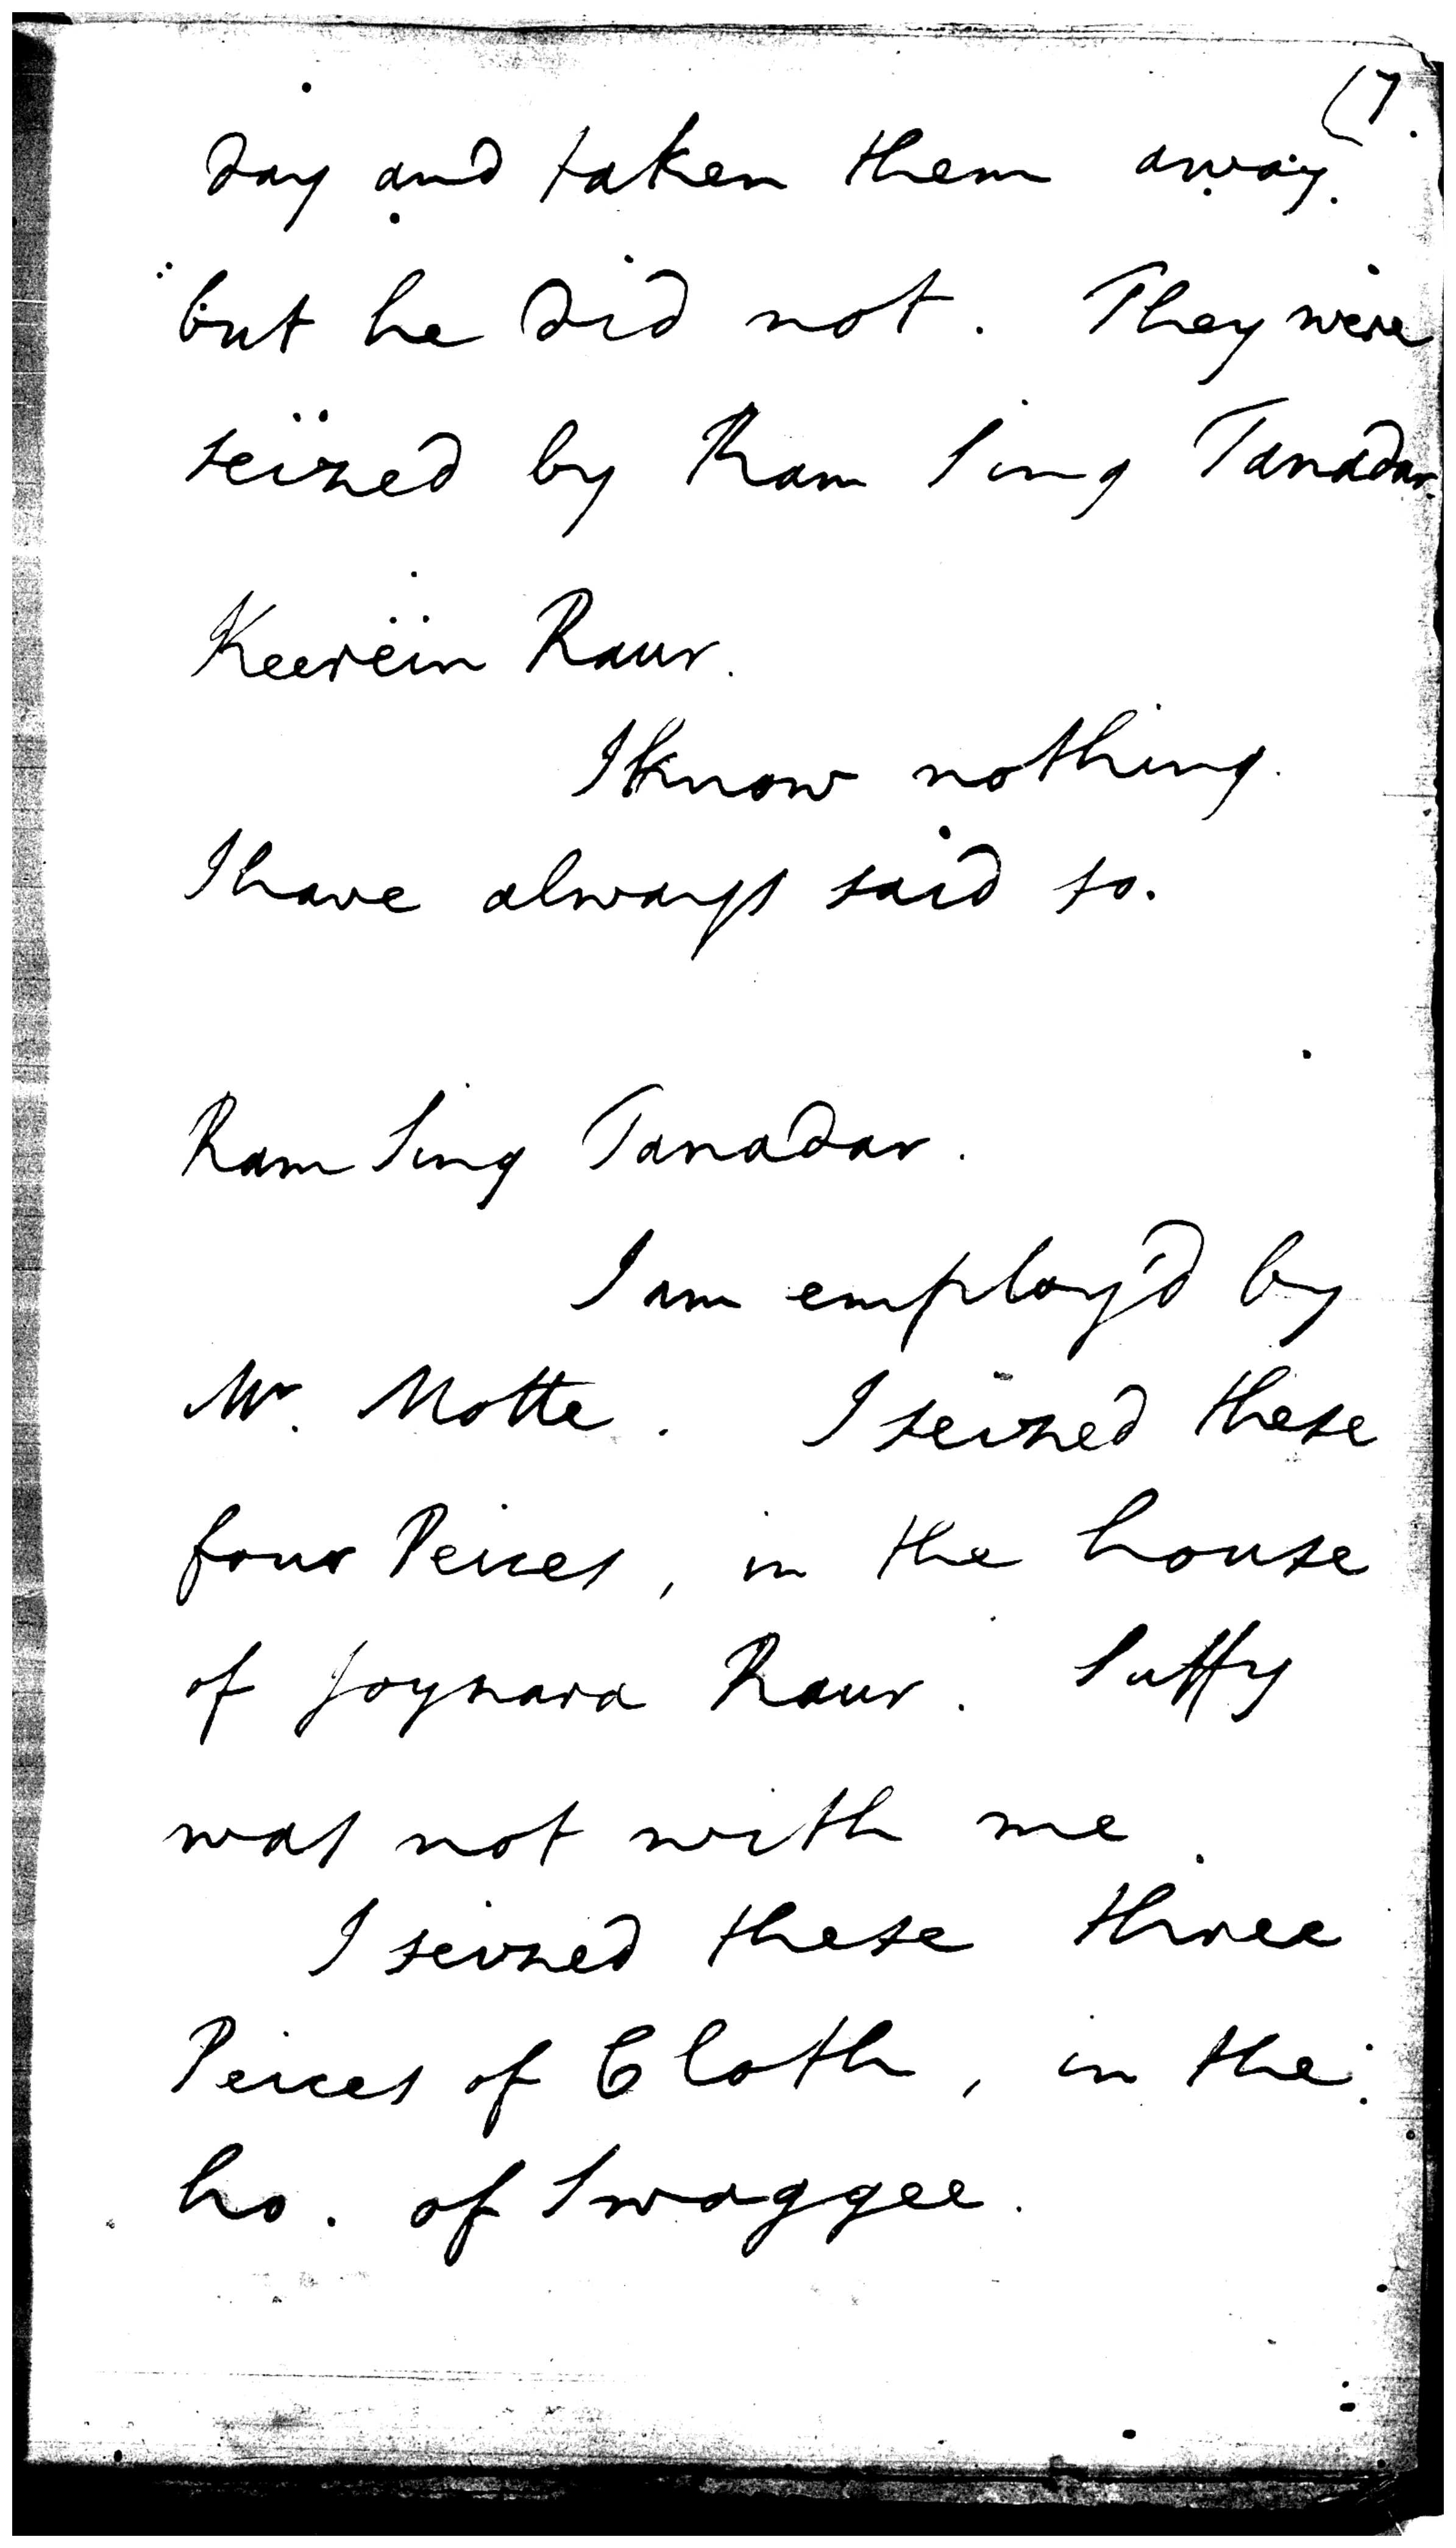 17.
day and taken them away.
but he did not. They were
seized by Ram Sing Tanadar.
Keerein Raur.
I know nothing.
I have always said so.
Ram Sing Tanadar.
I am employ'd by
Mr. Motte. I seized these
four Peices, in the house
of Joynara Raur. Suffy
was not with me.
I seized these three
Peices of Cloth, in the
ho. of Swaggee.